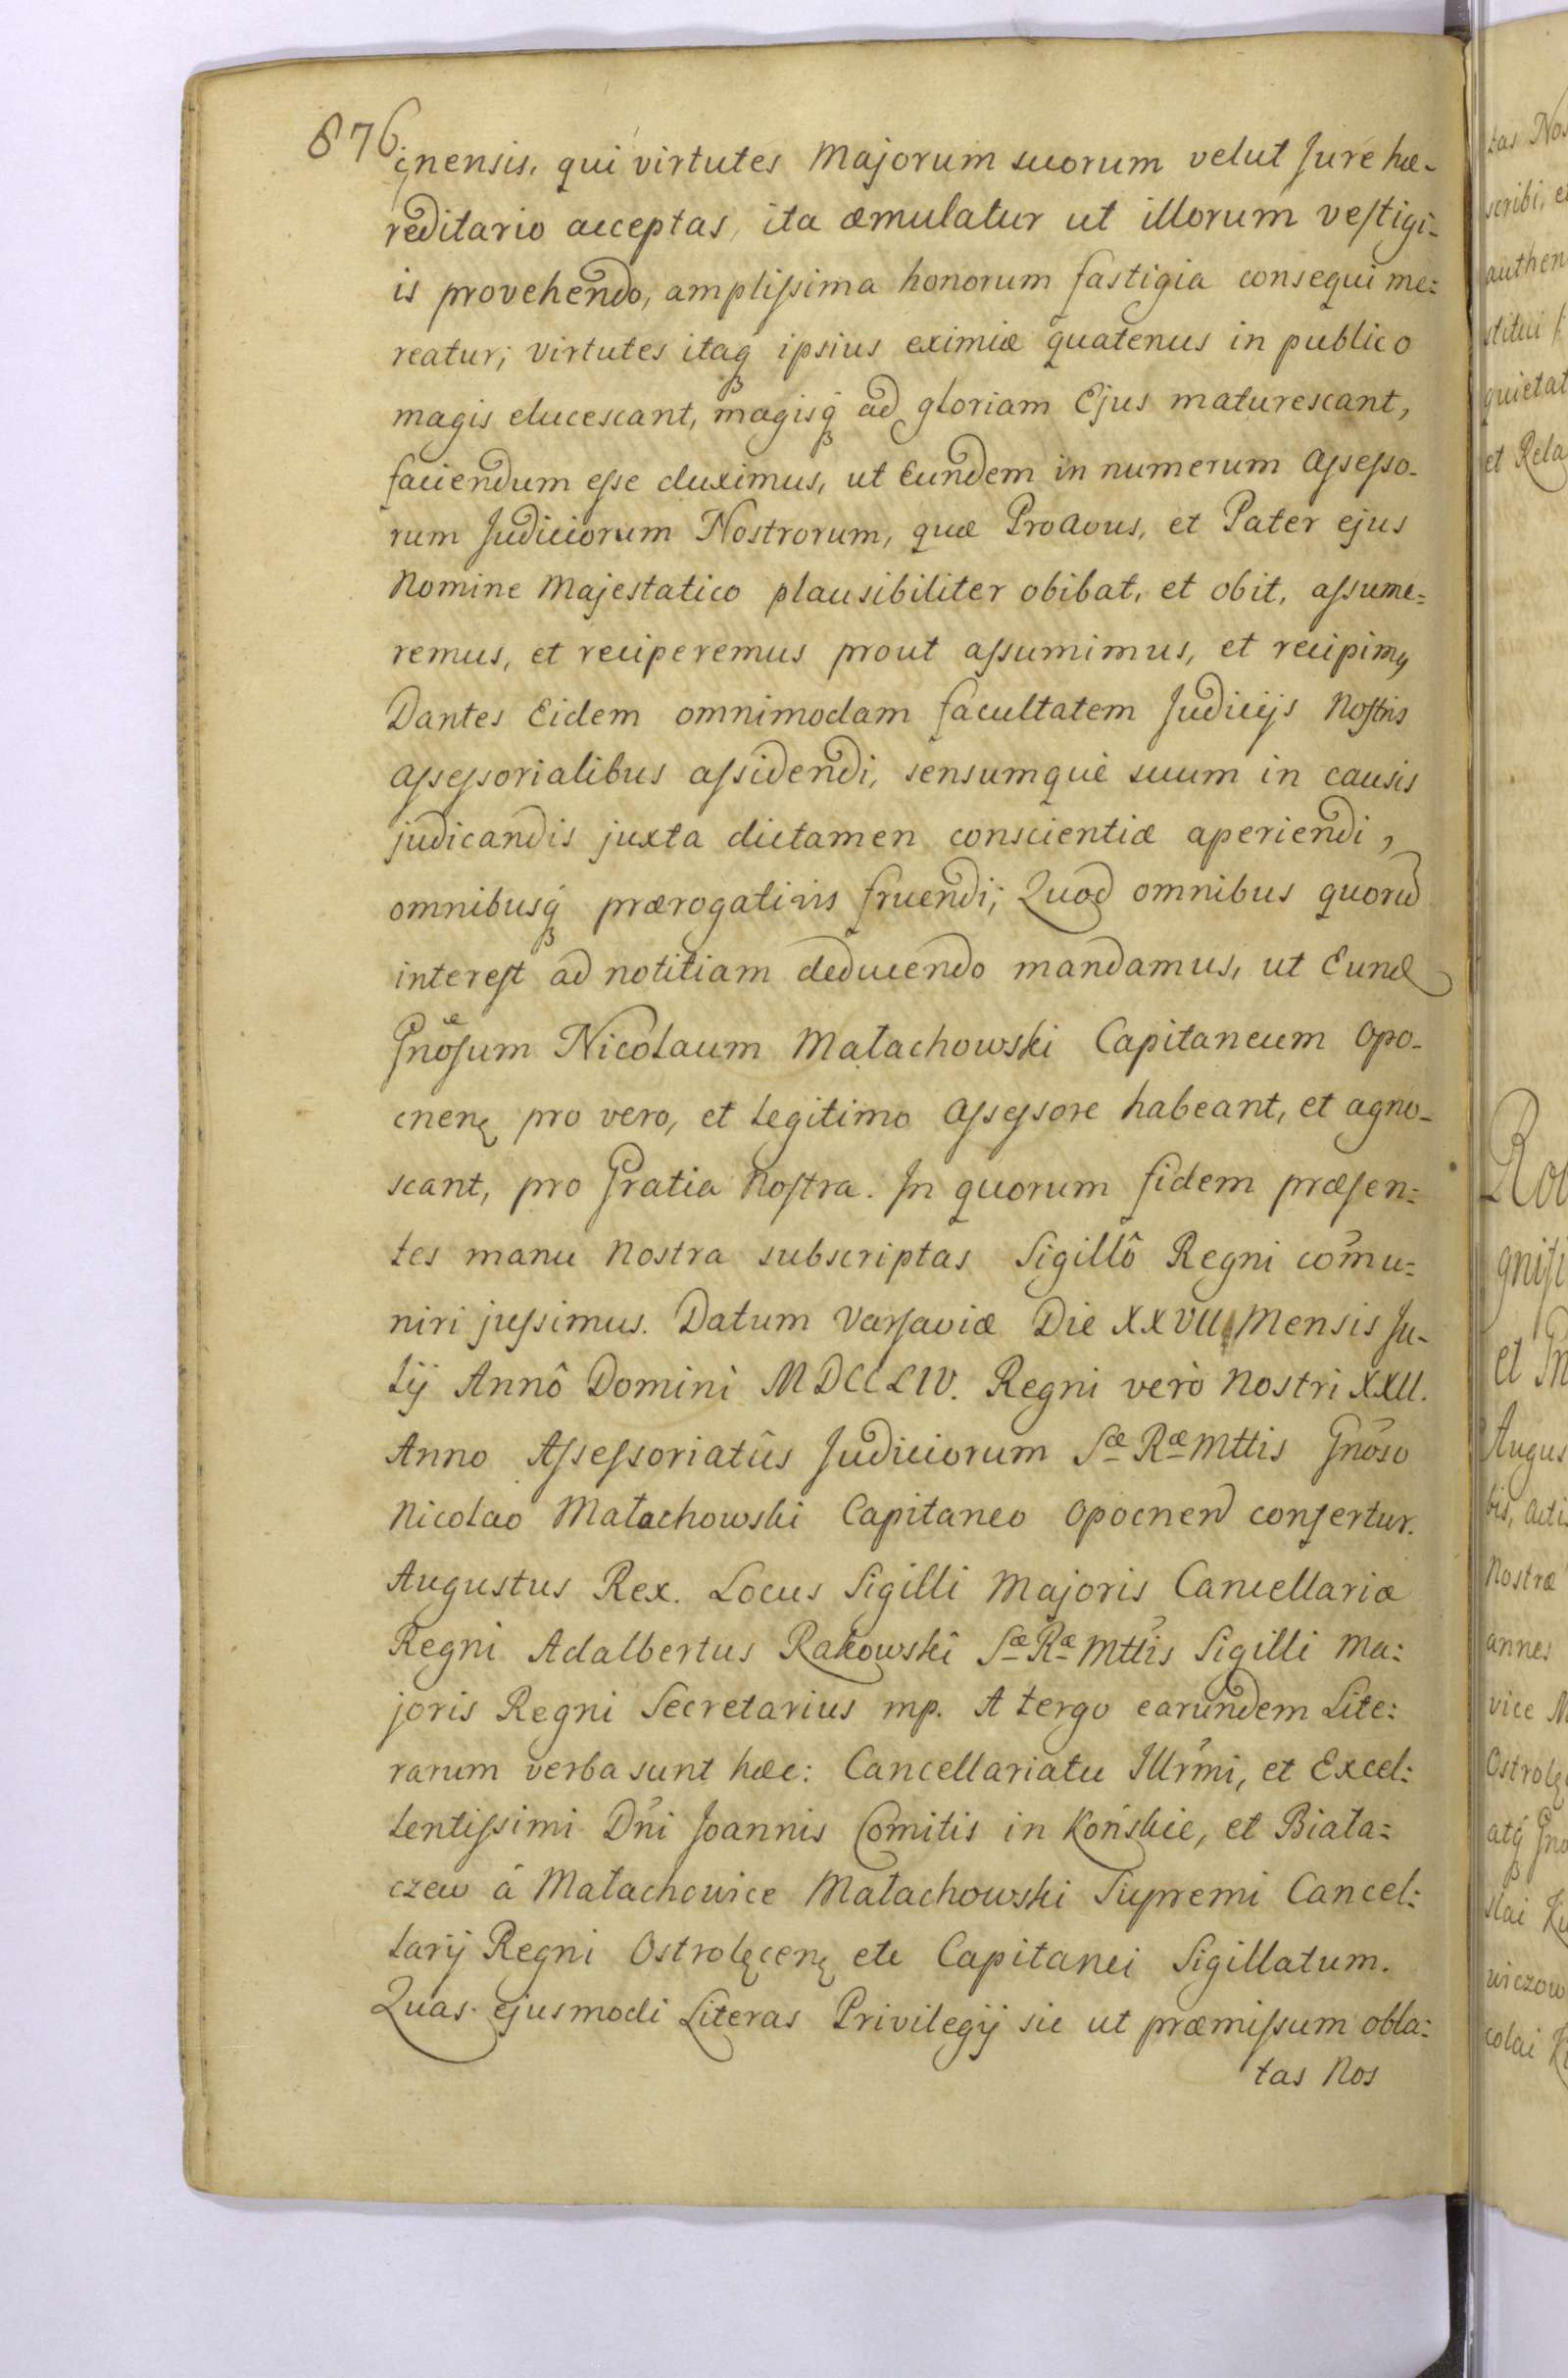 876
cnensis, qui virtutes Majorum suorum velut Jure hæ-
reditario acceptas, ita æmulatur ut illorum veſtigi-
is provehendo, ampliſsima honorum fastigia consequi me:
reatur; virtutes itaq́ꝫ ipsius eximiæ quatenus in publico
magis elucescant, magisq́ꝫ ad gloriam Ejus maturescant,
faciendum eſse duximus, ut Eundem in numerum Aſseſso-
rum Judiciorum Nostrorum, quæ Proavus, et Pater ejus
Nomine Majestatico plausibiliter obibat, et obit, aſsume=
remus, et reciperemus prout aſsumimus, et recipimꝰ
Dantes Eidem omnimodam facultatem Judicijs Noſtris
Aſseſsorialibus aſsidendi, sensumque suum in causis
judicandis juxta dictamen conscientiæ aperiendi,
omnibusq́ꝫ prærogativis fruendi; Quod omnibus quorũ
intereſt ad notitiam deducendo mandamus, ut Eund
Gnõſum Nicolaum Małachowski Capitaneum Opo-
cnenę pro vero, et legitimo Aſseſsore habeant, et agno-
scant, pro Gratia Noſtra. In quorum fidem præſen=
tes manu Nostra subscriptas Sigillô Regni com̃u=
niri juſsimus. Datum Varſaviæ Die XXVII Mensis Ju-
lij Annô Domini MDCCLIV. Regni verò Nostri XXII.
Anno Aſseſsoriatûs Judiciorum Sæ Ræ Mttis Gnõso
Nicolao Małachowski Capitaneo Opocnen confertur.
Augustus Rex. Locus Sigilli Majoris Cancellariæ
Regni Adalbertus Rakowski Sæ Ræ Mttis Sigilli Ma:
joris Regni Secretarius mp. A tergo earundem Lite:
rarum verba sunt hæc: Cancellariatu Illrm̃i, et Excel:
lentiſsimi Dñi Joannis Comitis in Końskie, et Biała=
czew á Małachowice Małachowski Supremi Cancel:
larij Regni Ostrołęcenę etc Capitanei Sigillatum.
Quas ejusmodi Literas Privilegij sic ut præmiſsum obla:
tas Nos